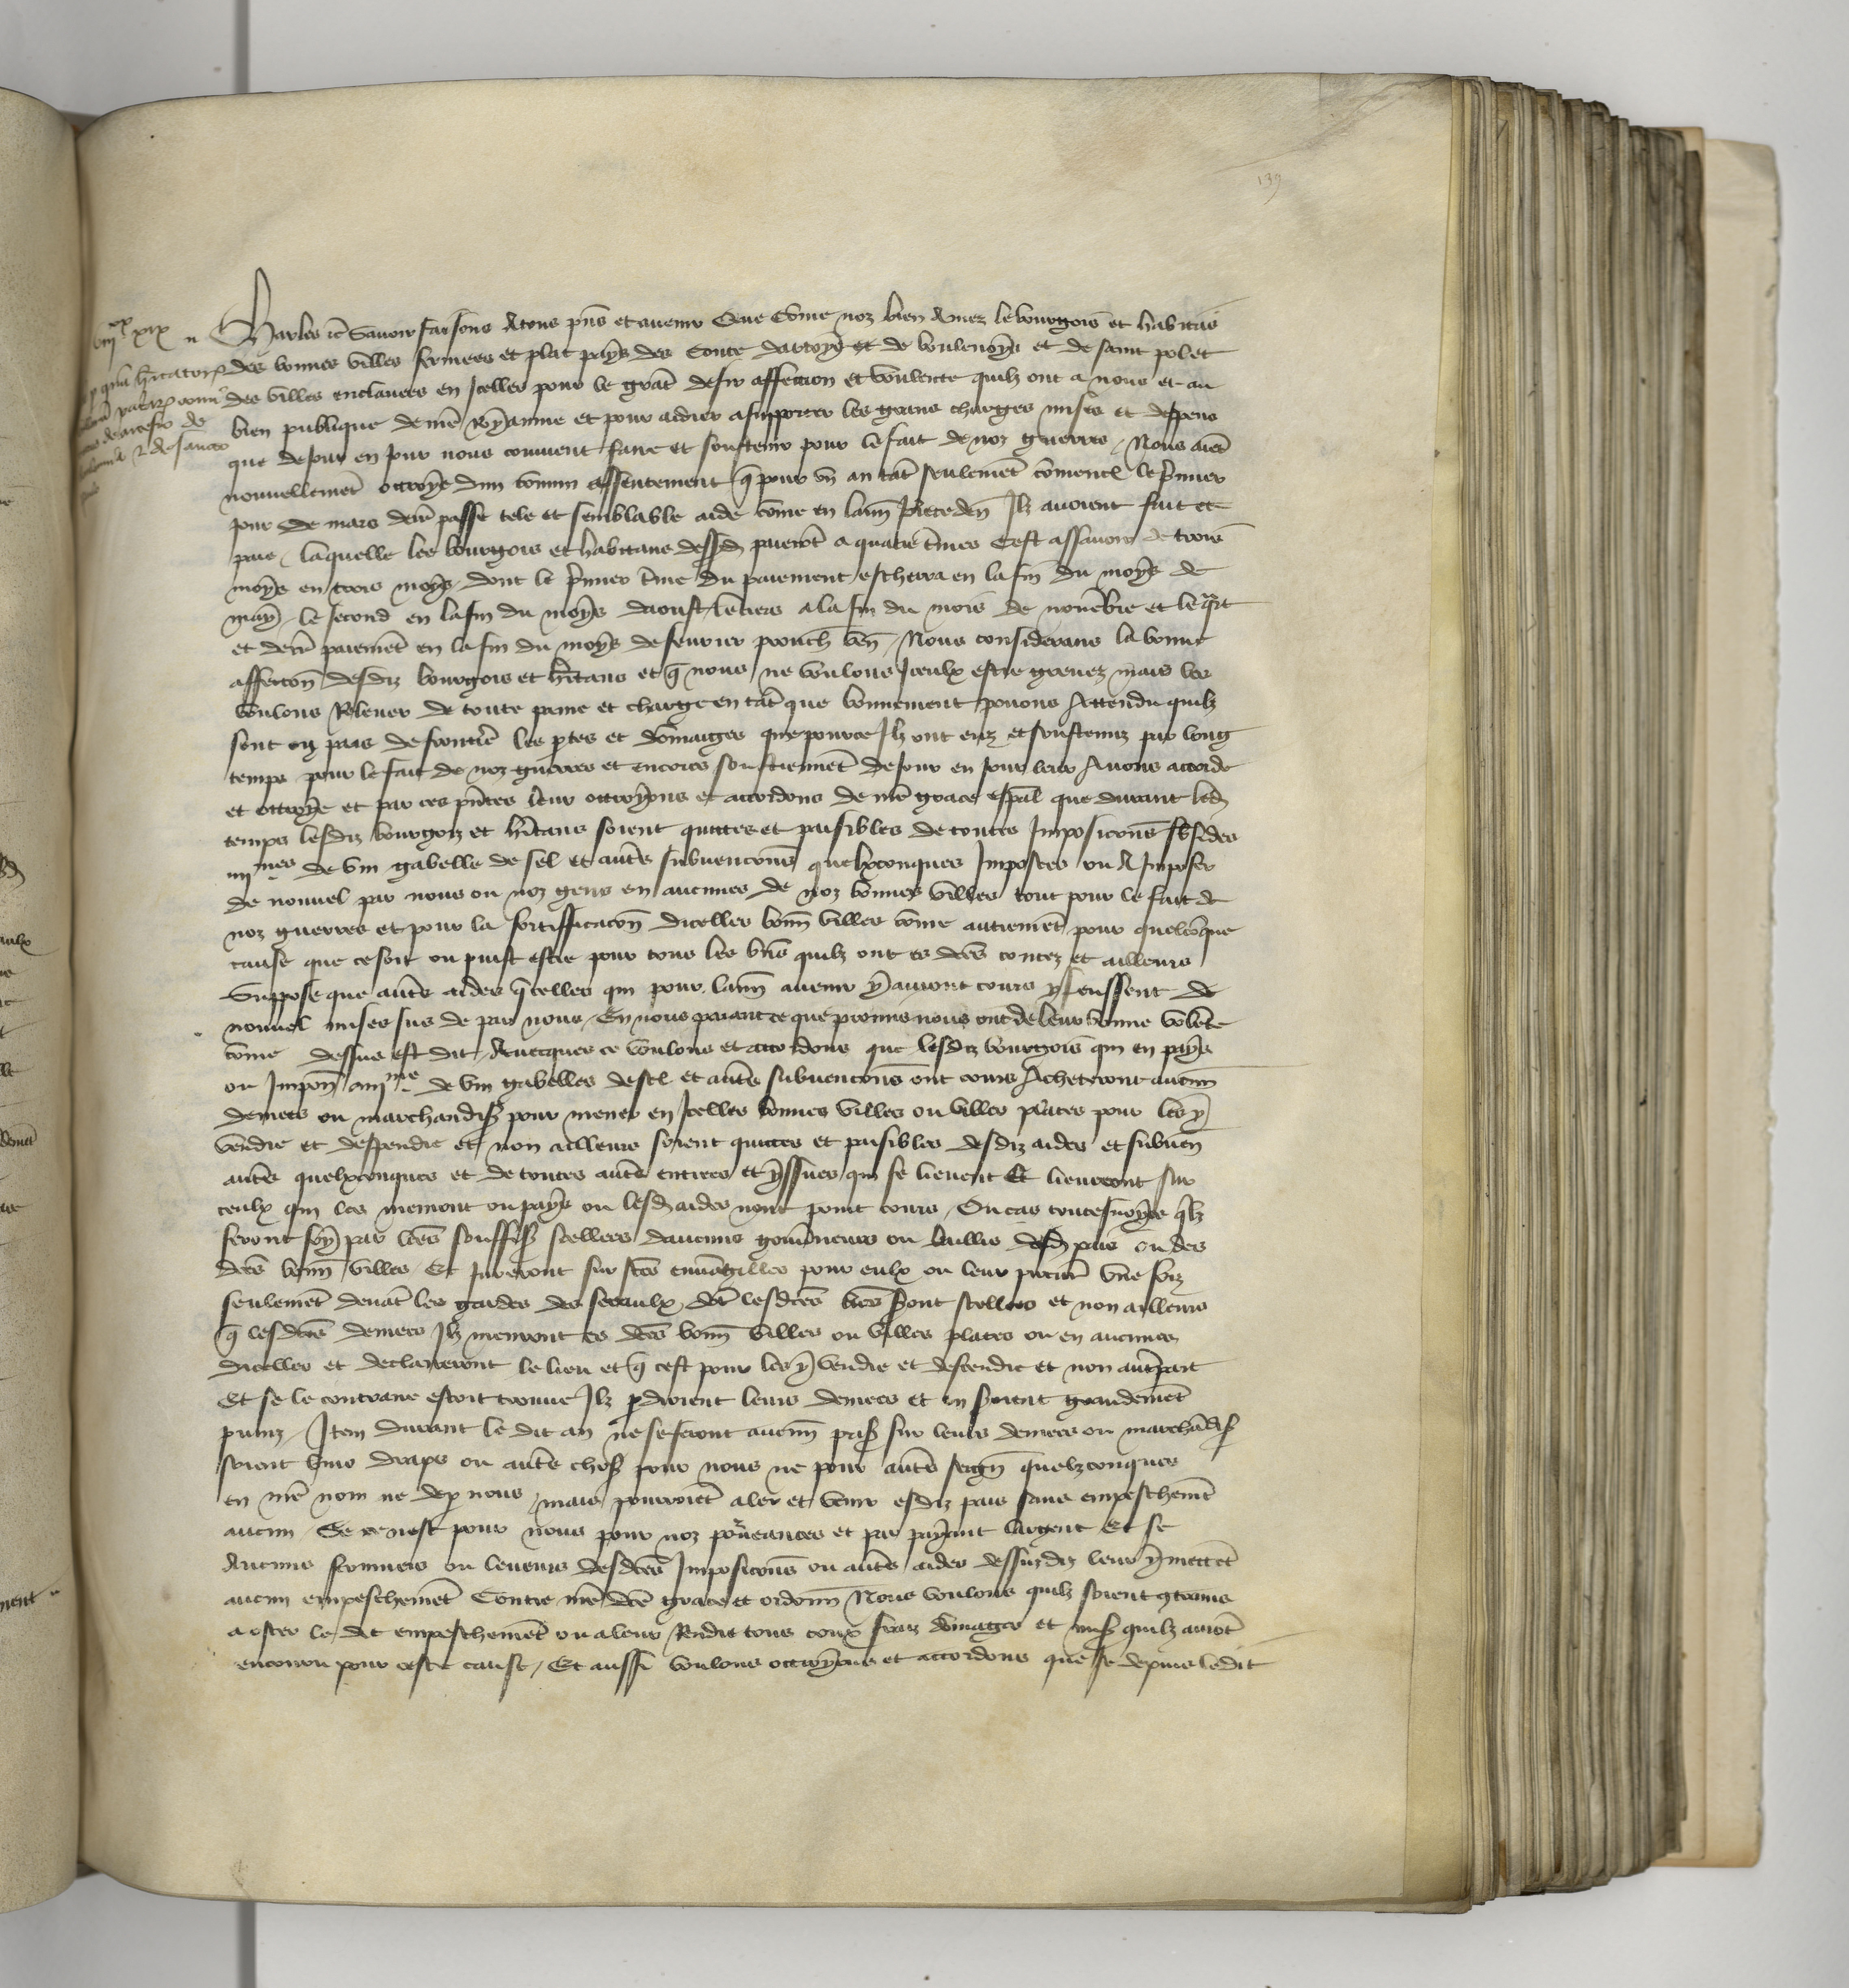 139
Charles etc Savoir faisons A tous pns et avenir Que Come noz bien Amez le bourgois et habitas
des bonnes villes fermees et plat pays des Conte dartoys et de boulenoys et de saint pol et
des villes enclavees en Icelles pour le grat desir affection et voulente quilz ont a nous et au
bien publique de nre Royaume et pour aidier a supporter les grans charges mises et despens
que de Jour en Jour nous convient faire et soustenir pour le fait de noz guerres / Nous aiet
nouvellemet ottroye dun comun assentement q pour un an tat seulemet comencent le pmier
Jour de mars derr passe tele et semblable aide come en lann precedent Ilz avoient fait et
paie / laquelle les bourgois et habitans dessd paierot a quatre tmes Cest assavoir de trois
moys en trois moys / dont le pmier tme du paiement escherra en la fin du moys de
may / le second en la fin du moys daoust / le tiers a la fin du mois de novebre et le qart
et derr paiemet en la fin du moys de fevrier prouch ven / Nous considerans la bonne
affection desdiz bourgois et hitans et q nous ne voulons Iceulx estre grevez mais les
voulons Relever de toute paine et charge en tat que bonnement povons Attendu quilz
sont en pais de frontie les ptes et domaiges que pource Ilz ont euz et soustenuz par long
temps pour le fait de noz guerres et encores soustiennet de Jour en Jour leur Avons accorde
et ottroye et par ces pntes leur ottroyons et accordons de nre grace espal que durant led
temps lesdiz bourgois et hitans soient quittes et paisibles de toutes Imposicons subsides
iiii mes de vin gabelle de sel et autes subvencons quelxconques Imposees ou A Imposer
de nouvel par nous ou noz gens en aucunes de noz bonnes villes tout pour le fait de
noz guerres et pour la fortifficacon dicelles bonn villes come autremet pour quelcoque
cause que ce soit ou puist estre pour tous les bns quilz ont es dces contez et ailleurs
Suppose que autes aides q celles qui pour lann avenir y auront cours y feussent de
nouvel mises sus de par nous / En nous paiant ce que promis nous ont de leur bonne volete
come dessus est dit / Avecques ce voulons et accordons que lesdiz bourgois qui en pays
ou Impon ou iiii me de vin gabelles de sel et autes subvencons ont cours Acheteront aucunn
denrees ou marchandises pour mener en Icelles bonnes villes ou villes plates pour les y
vendre et despendre et non ailleurs soient quittes et paisibles desdiz aides et subven
autes quelxconques et de toutes autes entrees et yssues qui se lievent Et lieveront sur
ceulx qui les menront ou pays ou lesd aides nont point cours / Ou cas toutesvoyes qlz
feront foy par lres souffis scellees daucuns gouvneurs ou baillis desd pais ou des
dces bonn villes / Et Jureront sur stes euvagilles pour eulx ou leur procur une foiz
seulemet devat les gardes des seeaulx dot lesdces lres sont scellees et non ailleurs
q lesdces denrees Ilz menront es dces bonn villes ou villes plates ou en aucunes
dicelles et declaireront le lieu et q cest pour les y vendre et despendre et non autrepart
Et se le contraire estoit trouve Ilz pdroient leurs denrees et en seroient grandemet
puniz / Item durant le dit an ne se feront aucunn prises sur leurs denrees ou marchadises
soient vins draps ou autes choses pour nous ne pour autes seign quelzconques
en nre nom ne de p nous / mais pourroiet aler et venir esdiz pais sans empeschemet
aucun / Se ce nest pour nous pour noz pourveances et par payant largent Et se
Aucuns fermiers ou leveurs desdces Imposicons ou autes aides dessusdiz leur y mettet
aucun empeschemet Contre nre dce grace et ordonn Nous voulons quilz soient contrains
a oster le dit empeschemet ou a leur Rendre tous coux fraiz domages et mises quilz auroet
encouru pour ceste cause / Et aussi voulons ottroyons et accordons que se depuis ledit